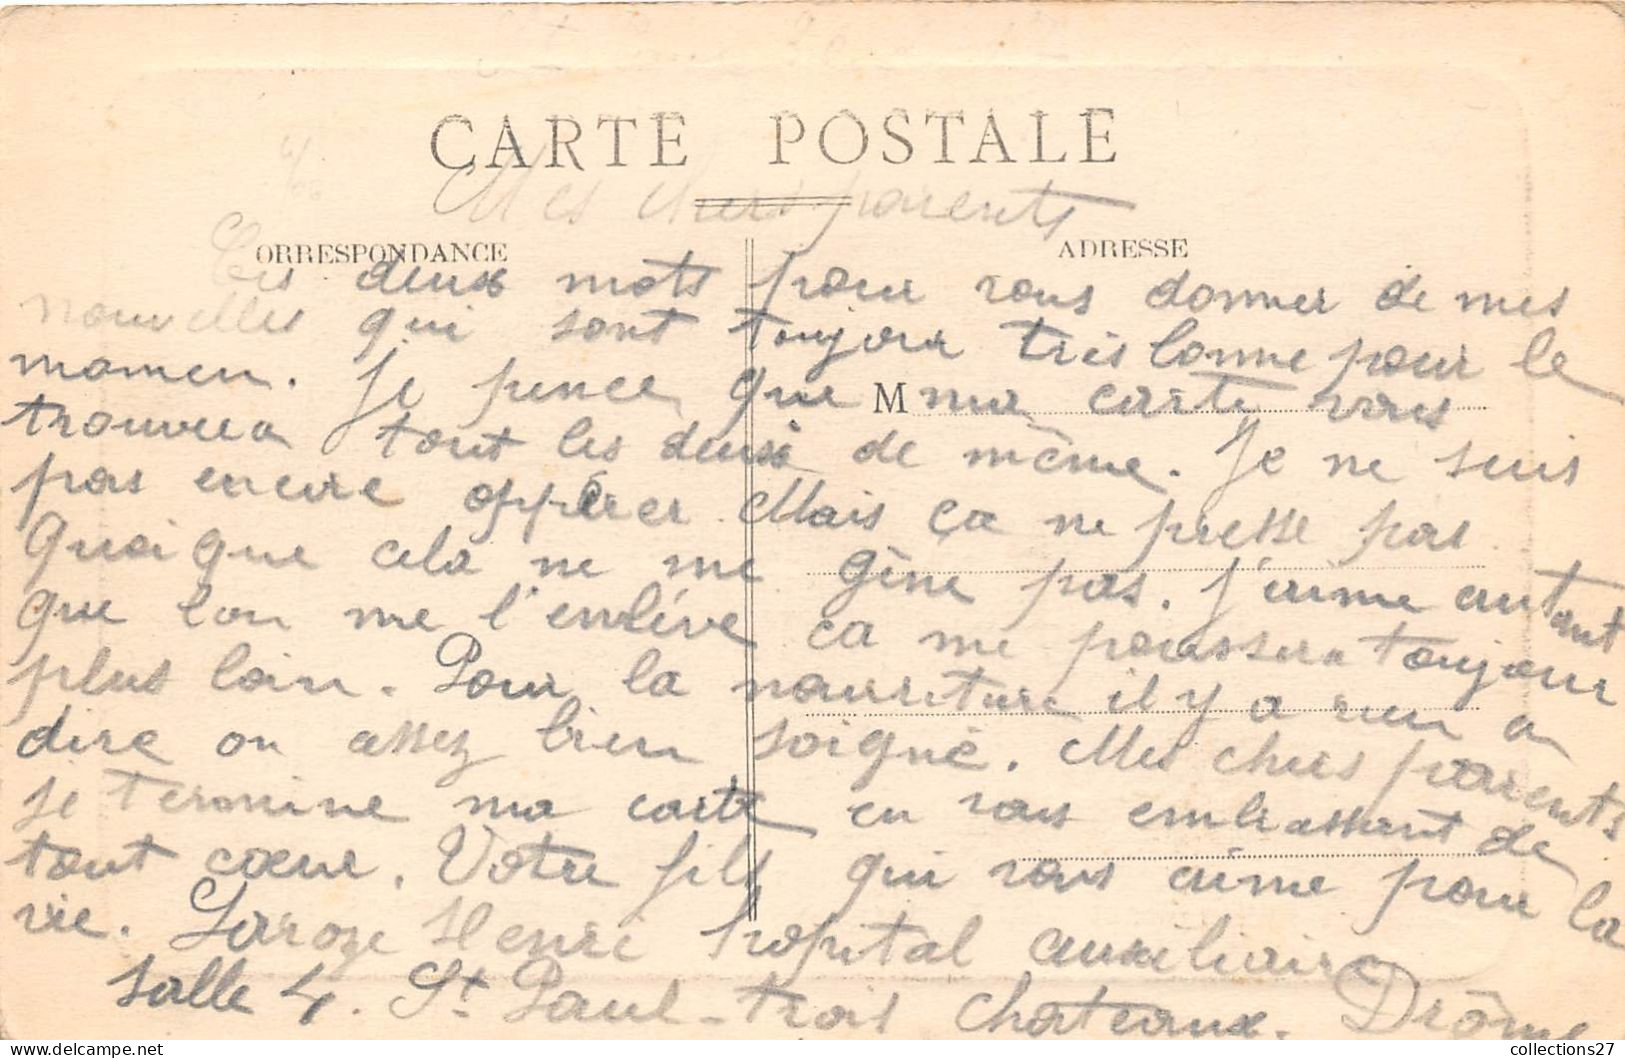 CARTE POSTALE
Mes chers parents
CORRESPONDANCE
ADRESSE
Ces deux mots pour vous donner de mes
nouvelles qui sont toujour très bonne pour le
momen. Je pence que ma carte vous
M
trouvera tout les deux de même. Je ne suis
pas encore oppérer. Mais ça ne presse pas
Quoique cela ne me gène pas. J'aime autant
que l'on me l'enlève ça me poussera toujour
plus loin. Pour la nourriture il y a rien a
dire on assez bien soigné. Mes chers parents
je termine ma carte en vous embrassant de
tout cœur. Votre fils qui vous aime pour la
vie. Laroze Henri hopital auxiliaire
salle 4. St Paul-trois Chateaux. Drôme
collections27